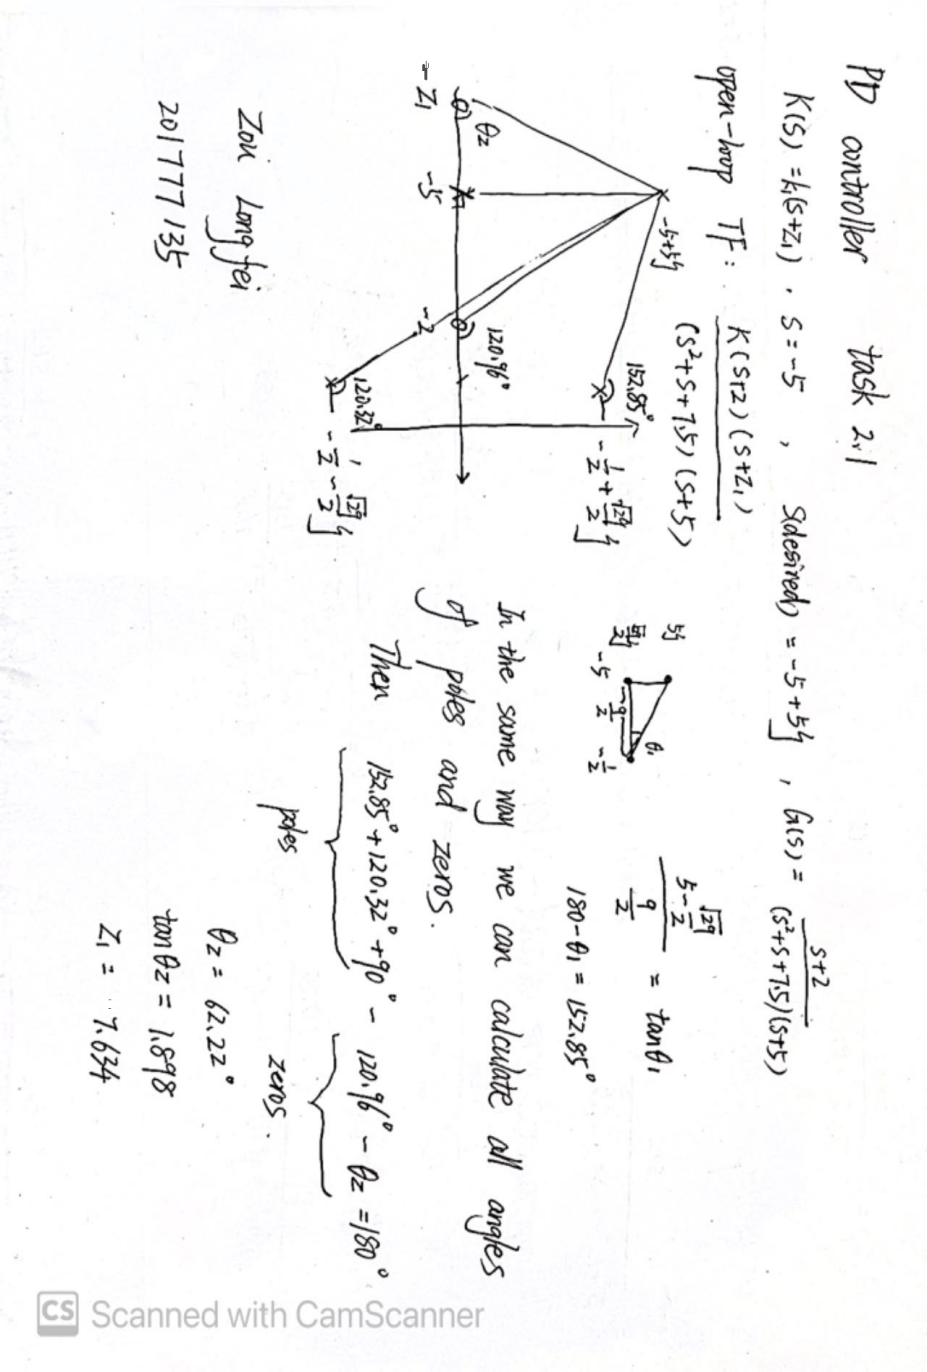 PD controller task 2.1
K(s) = k₁(s+z₁) . s = -5 , s(desired) = -5+5j , G(s) = (s+2)/((s²+s+7.5)(s+5))
open-loop TF : K(s+2)(s+z₁)/((s²+s+7.5)(s+5))
-5+5j
152.85°
-1/2 + √29/2 j
θz
120.96°
-z₁
-5
-2
120.32°
-1/2 - √29/2 j
5j
√29/2 j
θ₁
-5
-9/2
-1/2
(5 - √29/2)/(9/2) = tanθ₁
180-θ₁ = 152.85°
In the same way we can calculate all angles
of poles and zeros.
Then 152.85° + 120.32° + 90° - 120.96° - θz = 180°
poles
zeros.
θz = 62.22°
tanθz = 1.898
z₁ = 7.634
Zou Longfei
201777135
CS Scanned with CamScanner